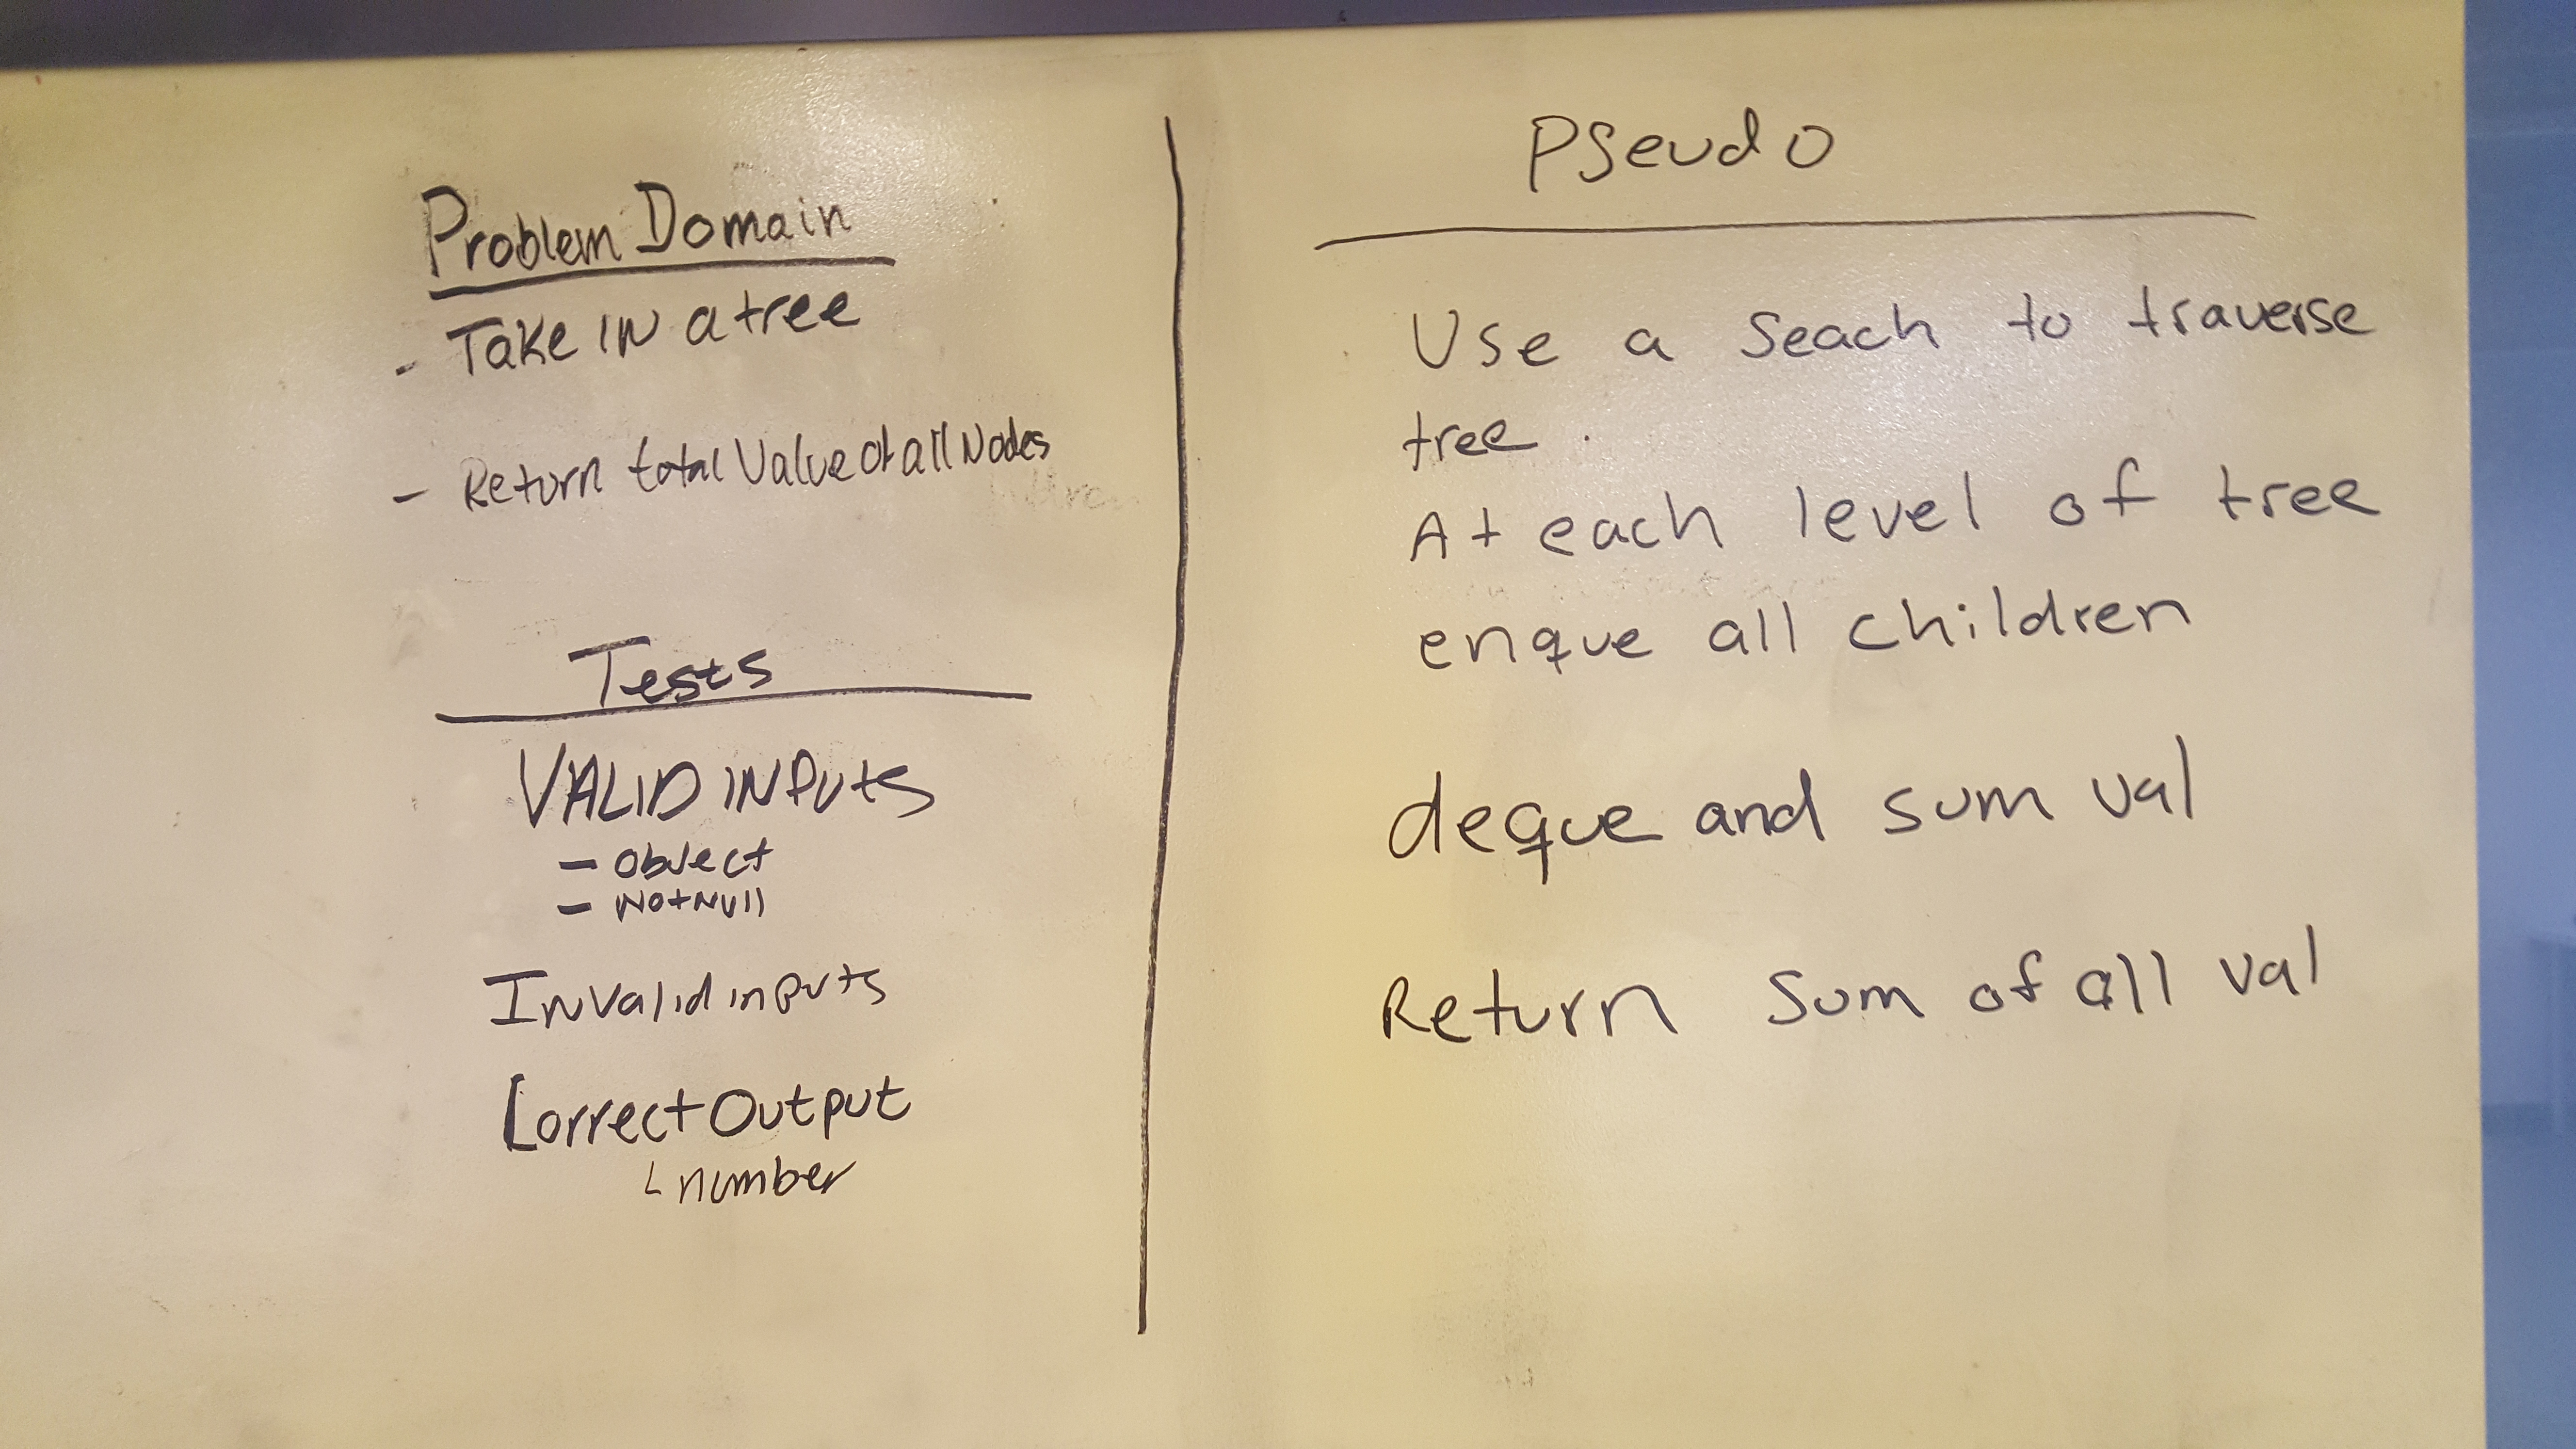 Problem Domain
- Take IN a tree
- Return total Value of all Nodes
Tests
VALID INPUTS
- Object
- Not Null
Invalid inputs
Correct Output
∟ number
Pseudo
Use a Seach to traverse
tree .
At each level of tree
enque all children
deque and sum val
Return Sum of all val